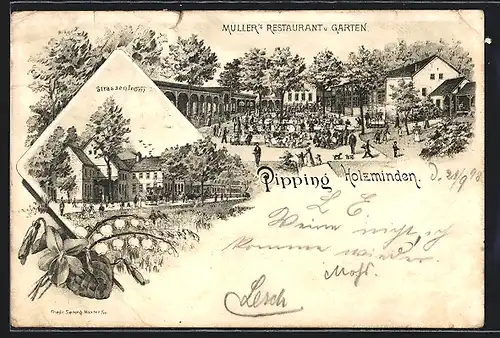 MÜLLER'S RESTAURANT U. GARTEN
Strassenfront
Pipping Holzminden.
d. 21/9 98
L. E.
Weine nicht, ich
komme wieder.
Lesch